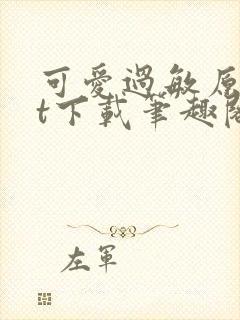 可愛過敏原
t下載筆趣閣
左軍